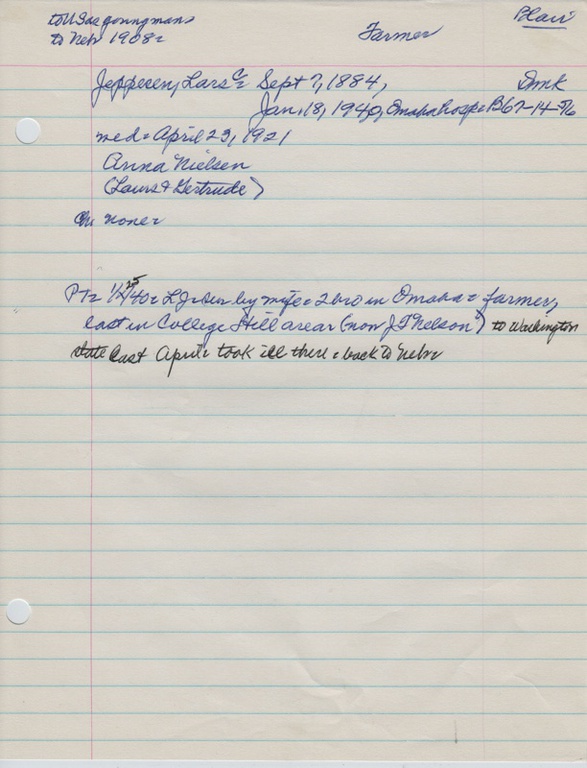 Blair
to USA as young man =
to Nebr 1908 =
Farmer
Jeppesen, Lars C = Sept 7, 1884, Dmk
Jan. 18, 1940, Omaha hosp = B 67-14-76
med = April 23, 1921
Anna Nielsen
(Laurs & Gertrude)
Ch: none =
PT = 1/25/40 = LJ = sur by wife = 2 bro in Omaha = farmer,
last in College Hill area = (now J F Nelson) to Washington
state last April = took ill there = back to Nebr =